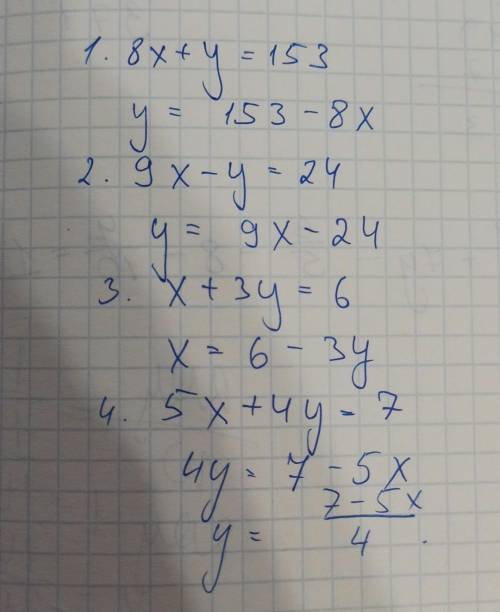 1. 8x + y = 153
y = 153 - 8x
2. 9x - y = 24
y = 9x - 24
3. x + 3y = 6
x = 6 - 3y
4. 5x + 4y = 7
4y = 7 - 5x
y = \frac{7 - 5x}{4}.